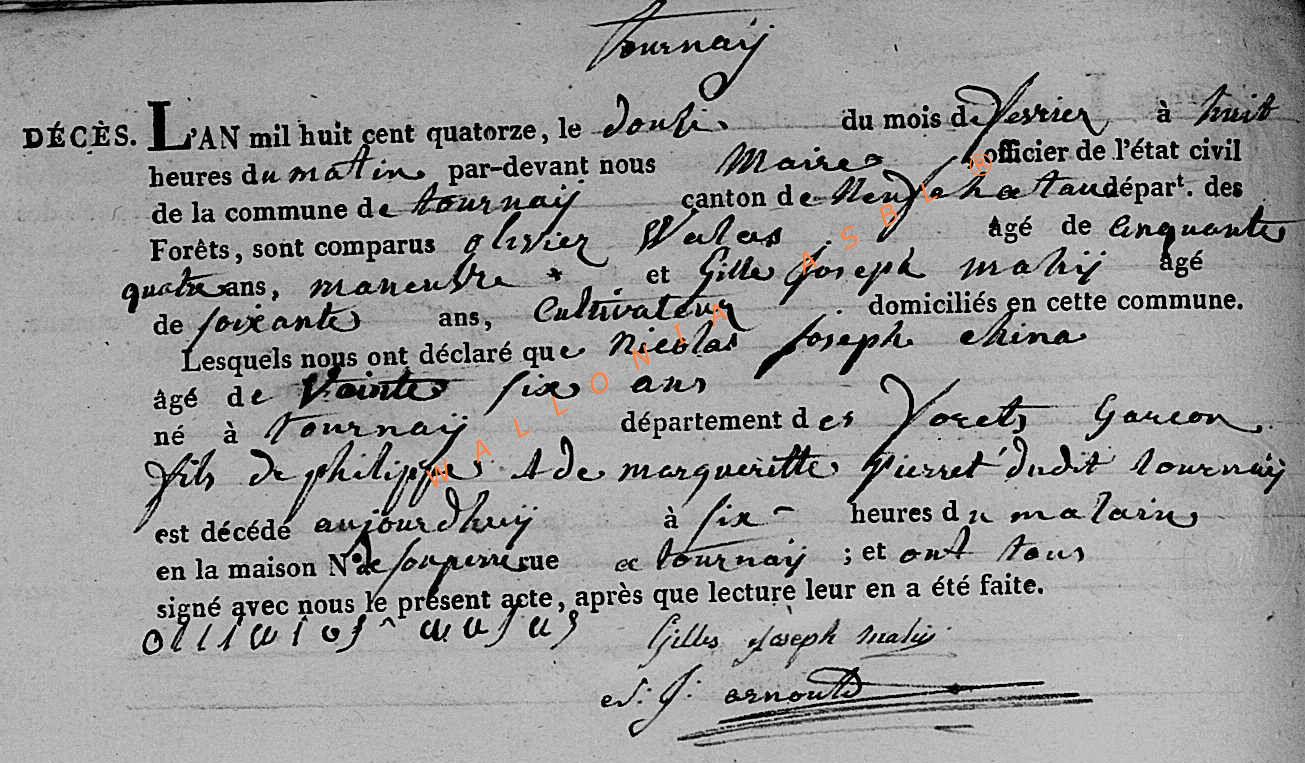 tournaij
DÉCÈS. L'AN mil huit cent quatorze, le douze du mois de fevrier à huit
heures du matin par-devant nous Maire officier de l'état civil
de la commune de tournaij canton de Neufchateau départ. des
Forêts, sont comparus olivier Walas âgé de Cinquante
quatre ans, maneuvre et Gille joseph mahij âgé
de soixante ans, Cultivateur domiciliés en cette commune.
Lesquels nous ont déclaré que Nicolas joseph china
âgé de Vainte six ans
né à tournaij département des forets Garcon
fils de philippe & de margueritte pierret dudit tournaij
est décédé aujourdhuij à six heures du matain
en la maison N° de son pere rue a tournaij ; et ont tous
signé avec nous le présent acte, après que lecture leur en a été faite.
Gilles joseph mahij
J. arnould
WALLONIA ASBL ®